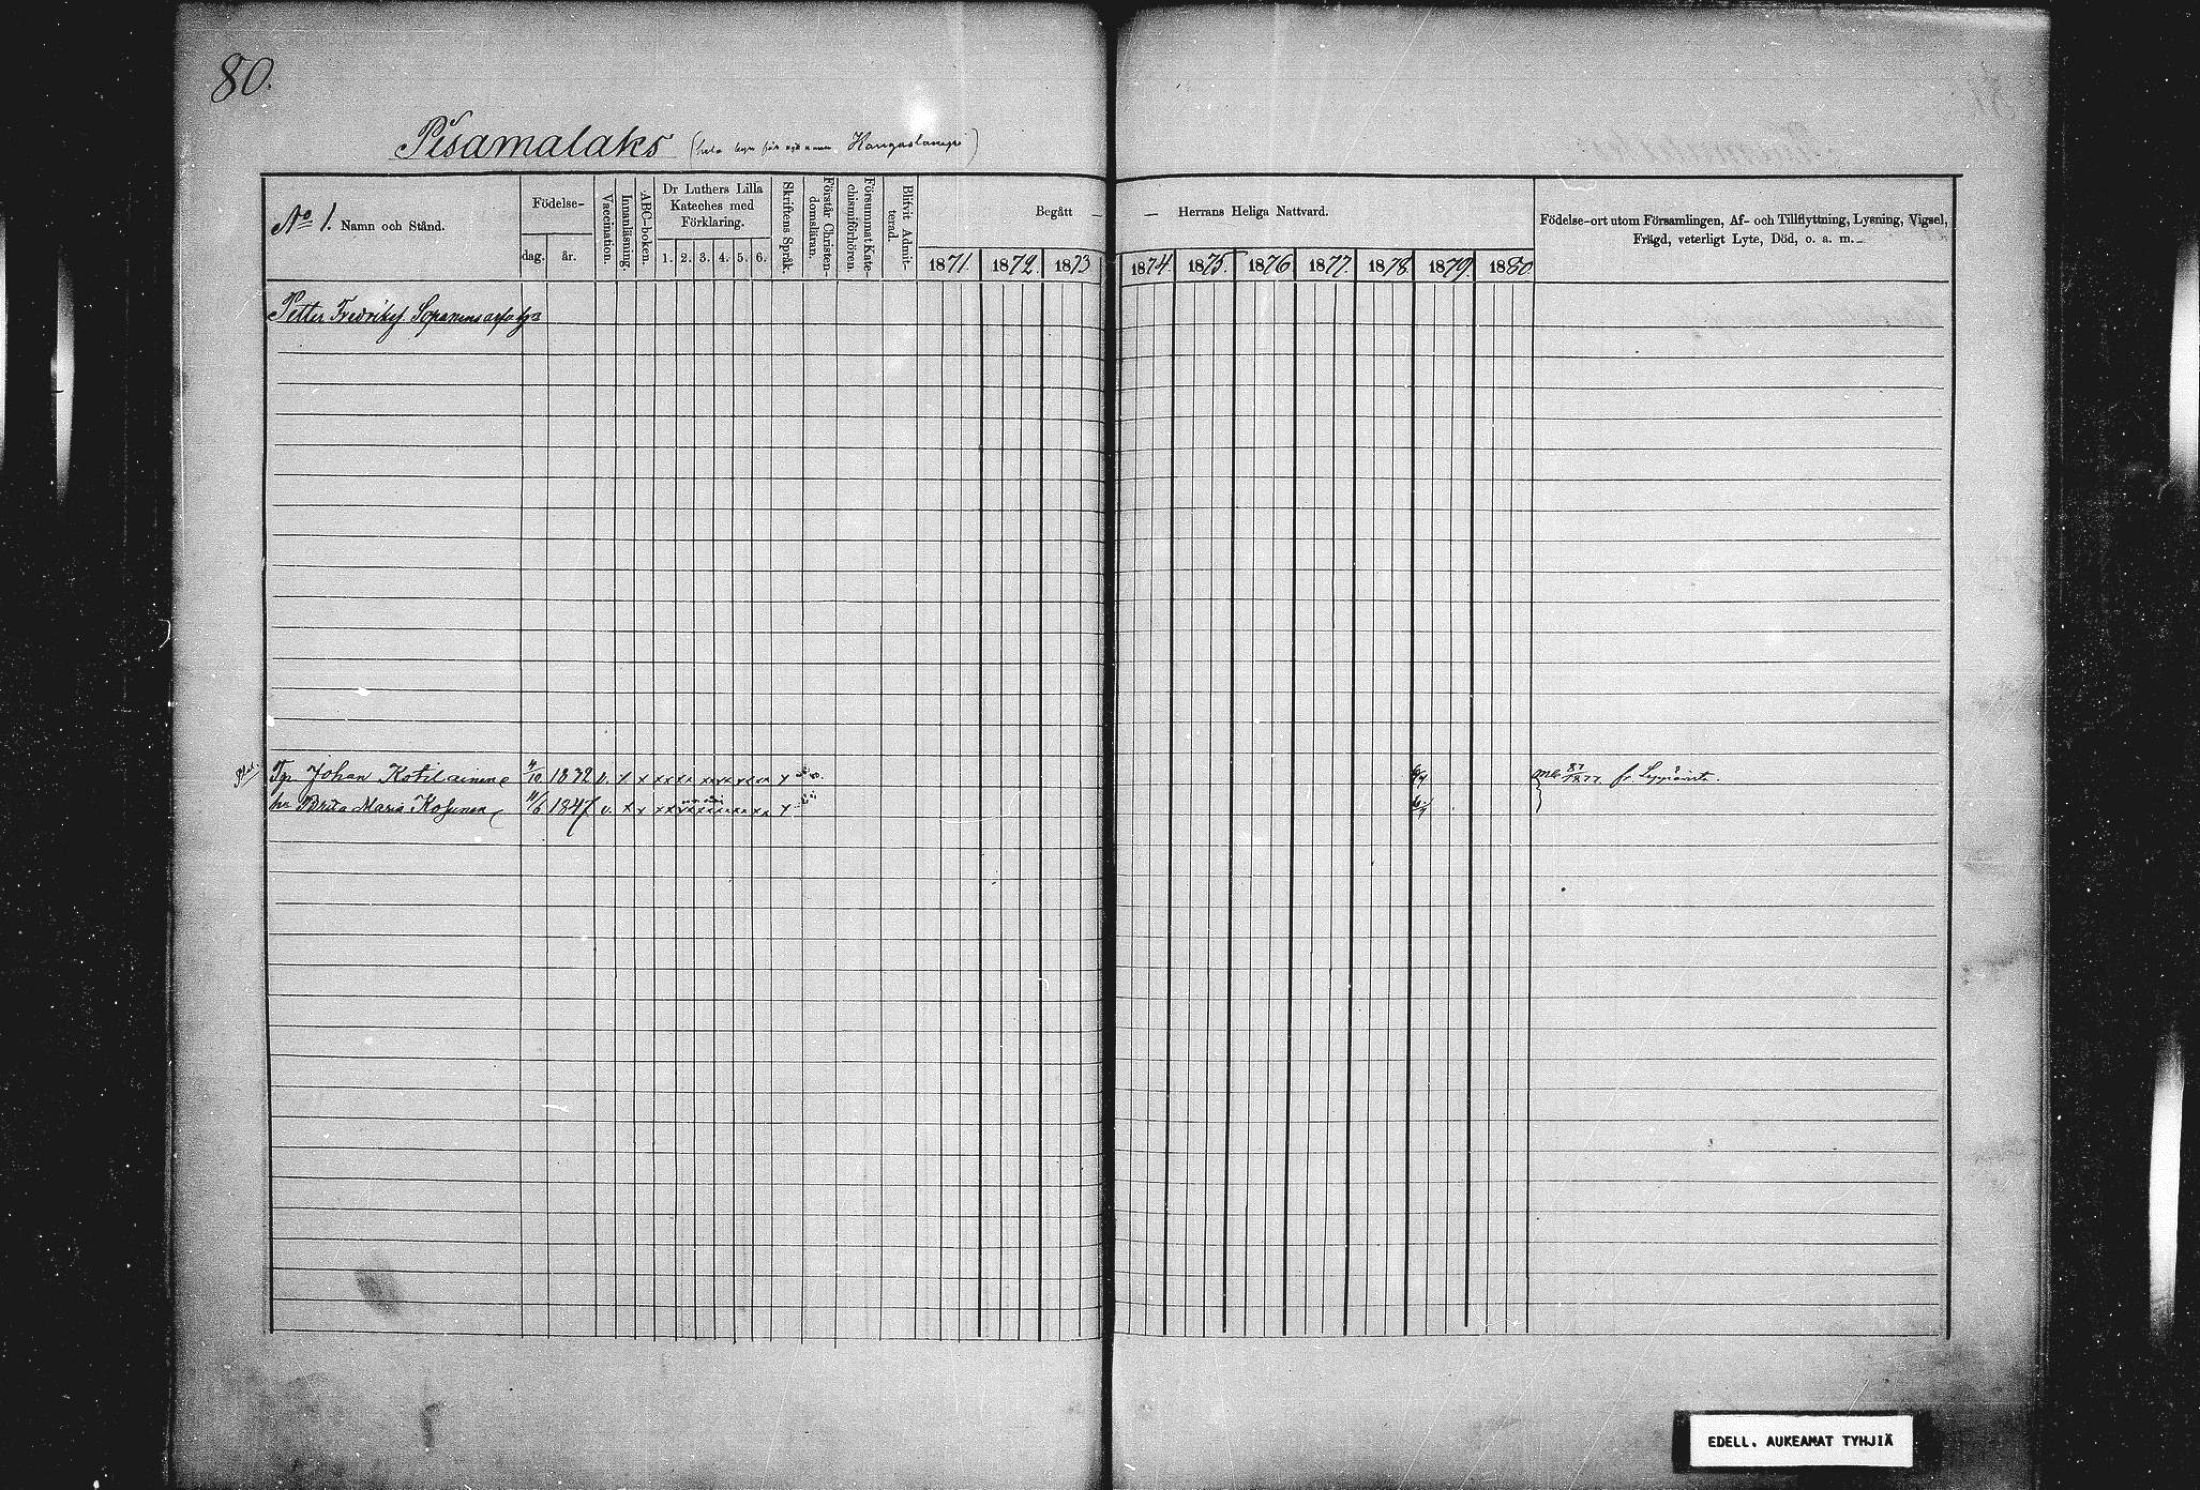 80.
Pisamalaks (hela byn Kangaslampi)
No 1. Namn och Stånd.
Födelse-
dag. år.
Vaccination.
Innanläsning.
ABC-boken.
Dr Luthers Lilla Kateches med Förklaring.
1. 2. 3. 4. 5. 6.
Skriftens Språk.
Förstår Christendomsläran.
Försummat Katechismiförhören.
Blifvit Admitterad.
Begått — — Herrans Heliga Nattvard.
1871. 1872. 1873 1874. 1875. 1876 1877. 1878 1879. 1880
Födelse-ort utom Församlingen, Af- och Tillflyttning, Lysning, Vigsel,
Frägd, veterligt Lyte, Död, o. a. m.
Petter Fredriks. Sopanens
Johan Kotilainen 1872 v. x x xx xx x
hu Brita Maria Kosunen 11/6 1847 v. x x xx x
1877 fr
EDELL. AUKEAMAT TYHJIÄ